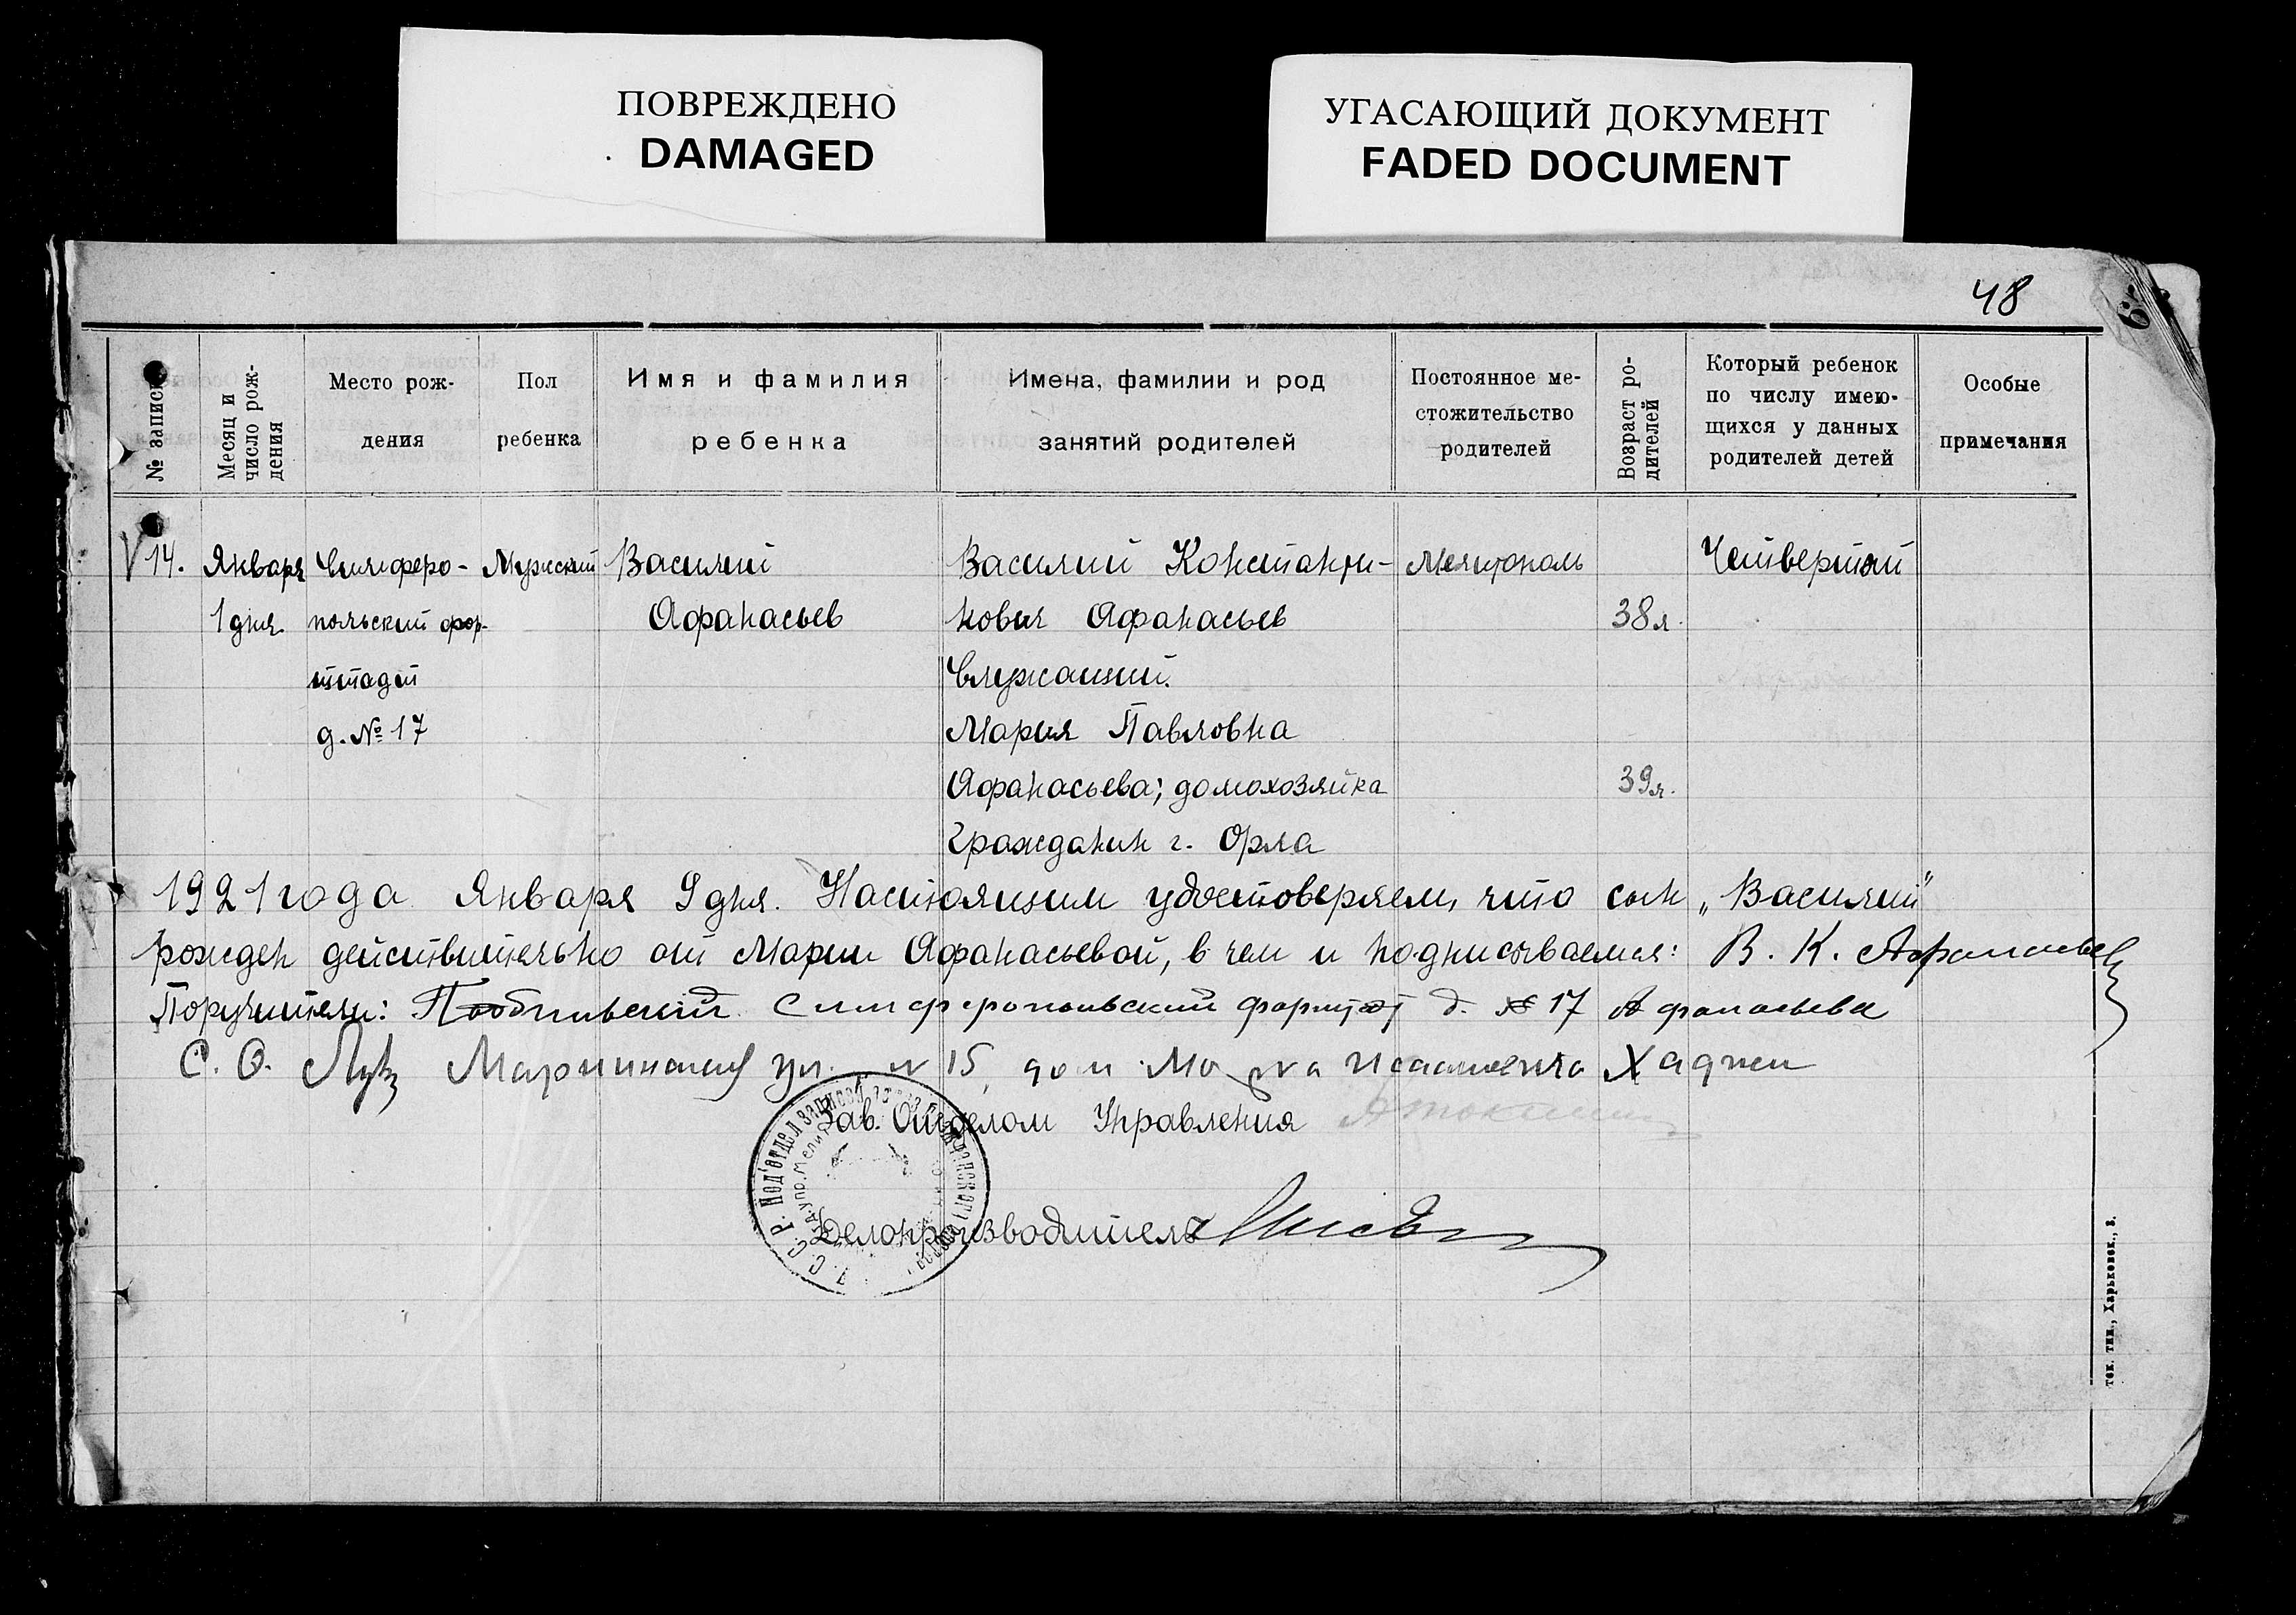 ПОВРЕЖДЕНО
DAMAGED
УГАСАЮЩИЙ ДОКУМЕНТ
FADED DOCUMENT
48
№ записи
Месяц и
число рож-
дения
Место рож-
дения
Пол
ребенка
Имя и фамилия
ребенка
Имена, фамилии и род
занятий родителей
Постоянное ме-
стожительство
родителей
Возраст ро-
дителей
Который ребенок
по числу имею-
щихся у данных
родителей детей
Особые
примечания
V 14.
Января
1 дня.
Симферо-
польский фор-
штадт
д. № 17
Мужской
Василий
Афанасьев
Василий Константи-
нович Афанасьев
Служащий.
Мария Павловна
Афанасьева; домохозяйка
Гражданин г. Орла
Мелитополь
38 л.
39 л.
Четвертый
1921 года Января 9 дня. Настоящим удостоверяем, что сын „Василий"
рожден действительно от Марии Афанасьевой, в чем и подписываемся: В. К. Афанасьев
Поручители: Симферопольский форштат д. № 17 Афанасьева
С. О. Мариинская ул. № 15, дом Хаджи
Зав. Отделом Управления
Делопроизводитель
тек. тип., Харьковск., 3.